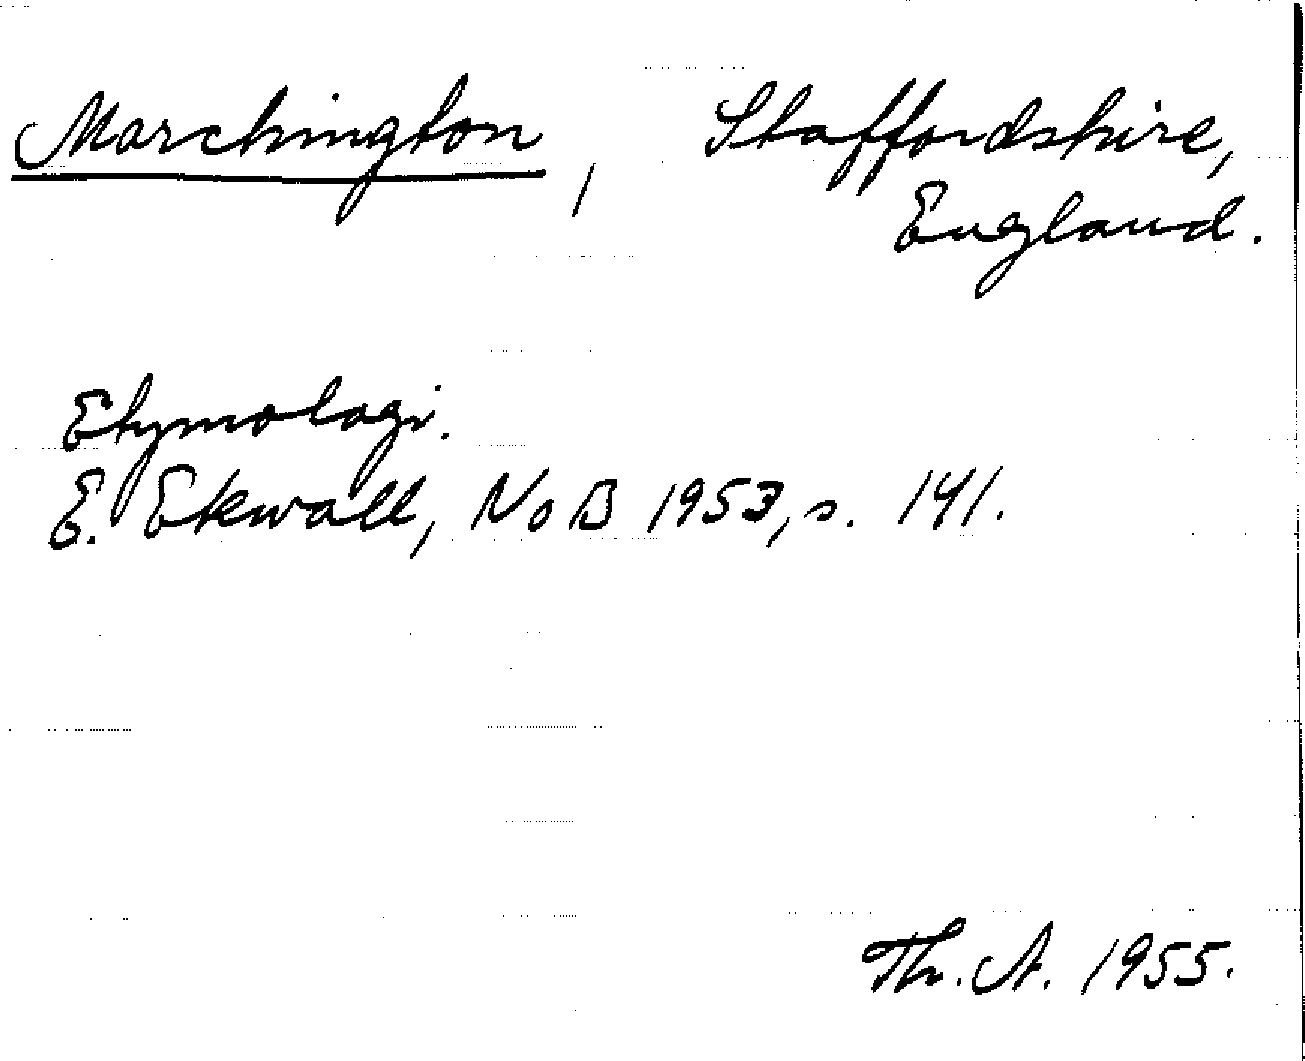 Marchington, Staffordshire,
England.
Etymologi.
E. Ekwall, NoB 1953, s. 141.
Th. A. 1955.